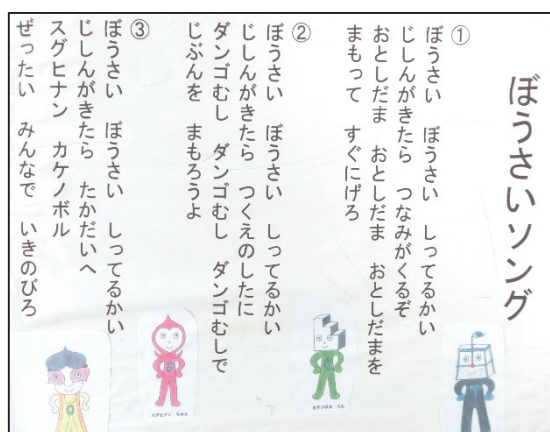 ぼうさいソング
①
ぼうさい ぼうさい しってるかい
じしんがきたら つなみがくるぞ
おとしだま おとしだま おとしだまを
まもって すぐにげろ
②
ぼうさい ぼうさい しってるかい
じしんがきたら つくえのしたに
ダンゴむし ダンゴむし ダンゴむしで
じぶんを まもろうよ
③
ぼうさい ぼうさい しってるかい
じしんがきたら たかだいへ
スグヒナン カケノボル
ぜったい みんなで いきのびろ